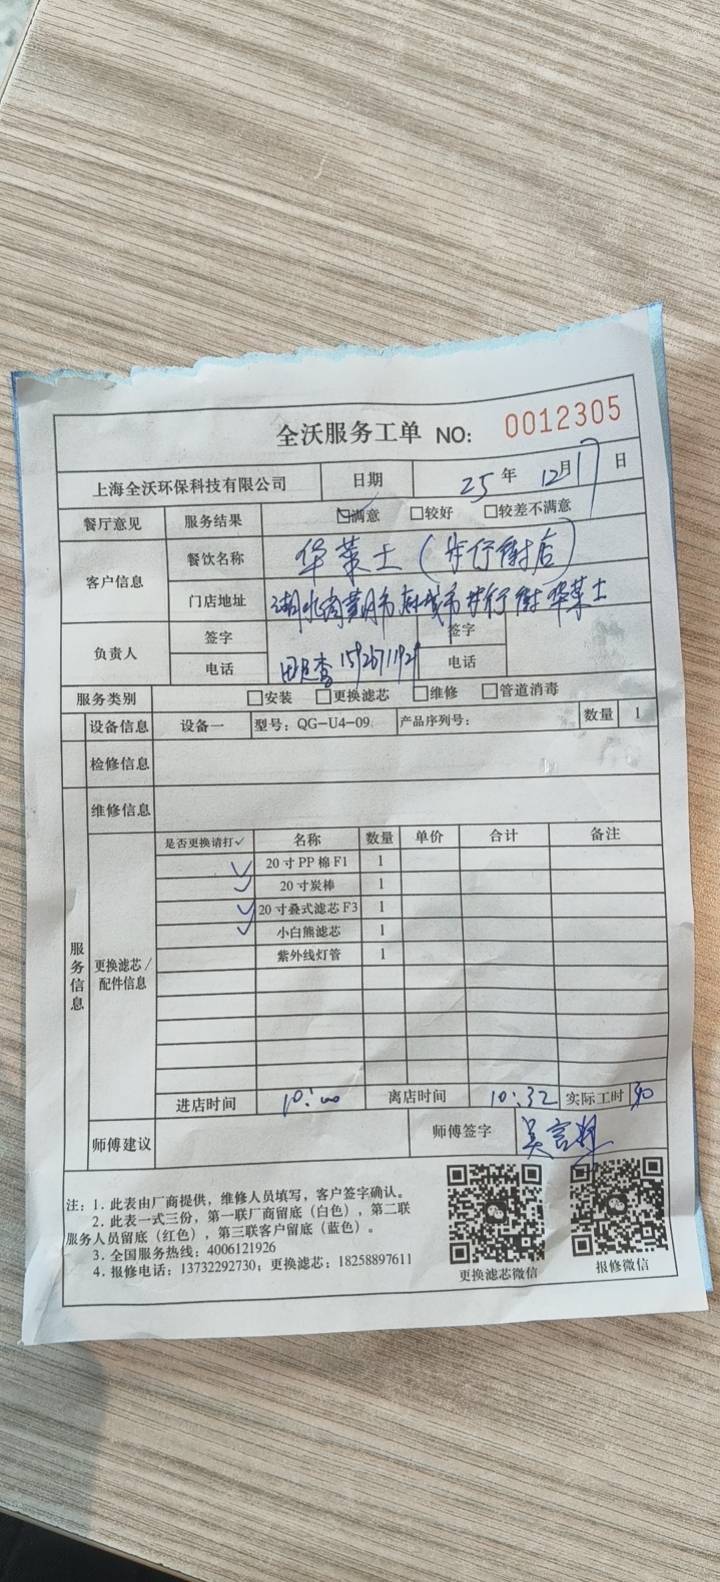 全沃服务工单 NO: 0012305
上海全沃环保科技有限公司 日期 25年 12月17日
餐厅意见 服务结果 ☑满意 □较好 □较差不满意
客户信息 餐饮名称 华莱士（步行街店）
门店地址 湖北省黄冈市麻城市步行街华莱士
负责人 签字 签字
电话 电话
服务类别 □安装 □更换滤芯 □维修 □管道消毒
设备信息 设备一 型号：QG-U4-09 产品序列号： 数量 1
检修信息
维修信息
服务信息 更换滤芯/配件信息 是否更换请打✓ 名称 数量 单价 合计 备注
✓ 20寸PP棉F1 1
✓ 20寸炭棒 1
✓ 20寸叠式滤芯F3 1
✓ 小白熊滤芯 1
紫外线灯管 1
进店时间 10:00 离店时间 10:32 实际工时
师傅建议 师傅签字
注：1. 此表由厂商提供，维修人员填写，客户签字确认。
2. 此表一式三份，第一联厂商留底（白色），第二联
服务人员留底（红色），第三联客户留底（蓝色）。
3. 全国服务热线：4006121926
4. 报修电话：13732292730；更换滤芯：18258897611
更换滤芯微信 报修微信